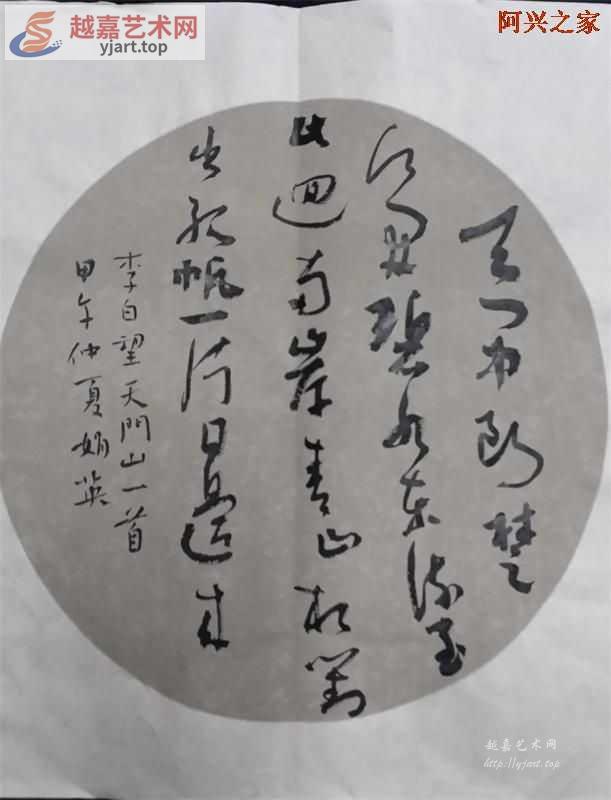 越嘉艺术网
yjart.top
阿兴之家
天门中断楚
江開碧水东流至
此迴兩岸青山相對
出孤帆一片日邊来
李白望天門山一首
甲午仲夏娟英
越嘉艺术网
http://yjart.top